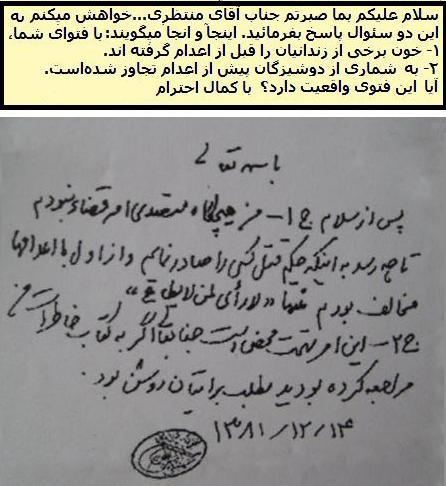 سلام علیکم بما صبرتم جناب آقای منتظری...خواهش میکنم به
این دو سئوال پاسخ بفرمائید. اینجا و انجا میگویند: با فتوای شما،
۱- خون برخی از زندانیان را قبل از اعدام گرفته اند.
۲- به شماری از دوشیزگان پیش از اعدام تجاوز شده‌است.
آیا این فتوی واقعیت دارد؟ با کمال احترام
باسمه تعالی
پس از سلام ج ۱- من هیچگاه متصدی امر قضاء نبودم
تا چه رسد به اینکه حکم قتل کسی را صادر نمایم و از اول با اعدامها
مخالف بودم «لا رأی لمن لا یطاع»
ج ۲- این امر تهمت محض است جنابعالی اگر به کتاب خاطرات من
مراجعه کرده بودید مطلب برایتان روشن بود.
۱۳۸۱/۱۲/۱۴